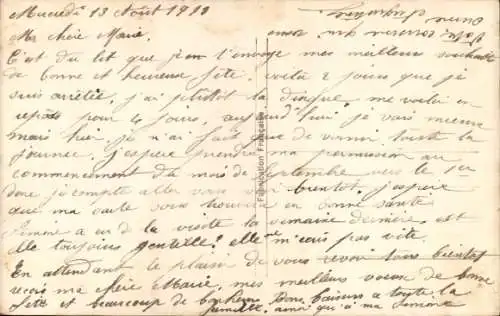 Mercredi 13 Août 1919
Ma chère Marie.
C'est du lit que je t'envoye mes meilleurs souhaits
de bonne et heureuse fête. voilà 2 jours que je
suis arrêté, j'ai plutôt la dingue me voilà en
repos pour 4 jours, aujourd'hui je vais mieux
mais hier je n'ai fait que de vomir toute la
journée. j'espère prendre ma permission au
commencement du mois de Septembre vers le 1er
donc je compte aller vous voir bientôt. j'espère
que ma carte vous trouvera en bonne santé
femme a eu de la visite la semaine dernière, est
elle toujours gentille? elle ne m'écris pas vite.
En attendant le plaisir de vous revoir tous bientôt
reçois ma chère Marie, mes meilleurs vœux de bonne
fête et beaucoup de bonheur. Bons baisers à toute la
famille, ainsi qu'à ma femme
Fabrication Française